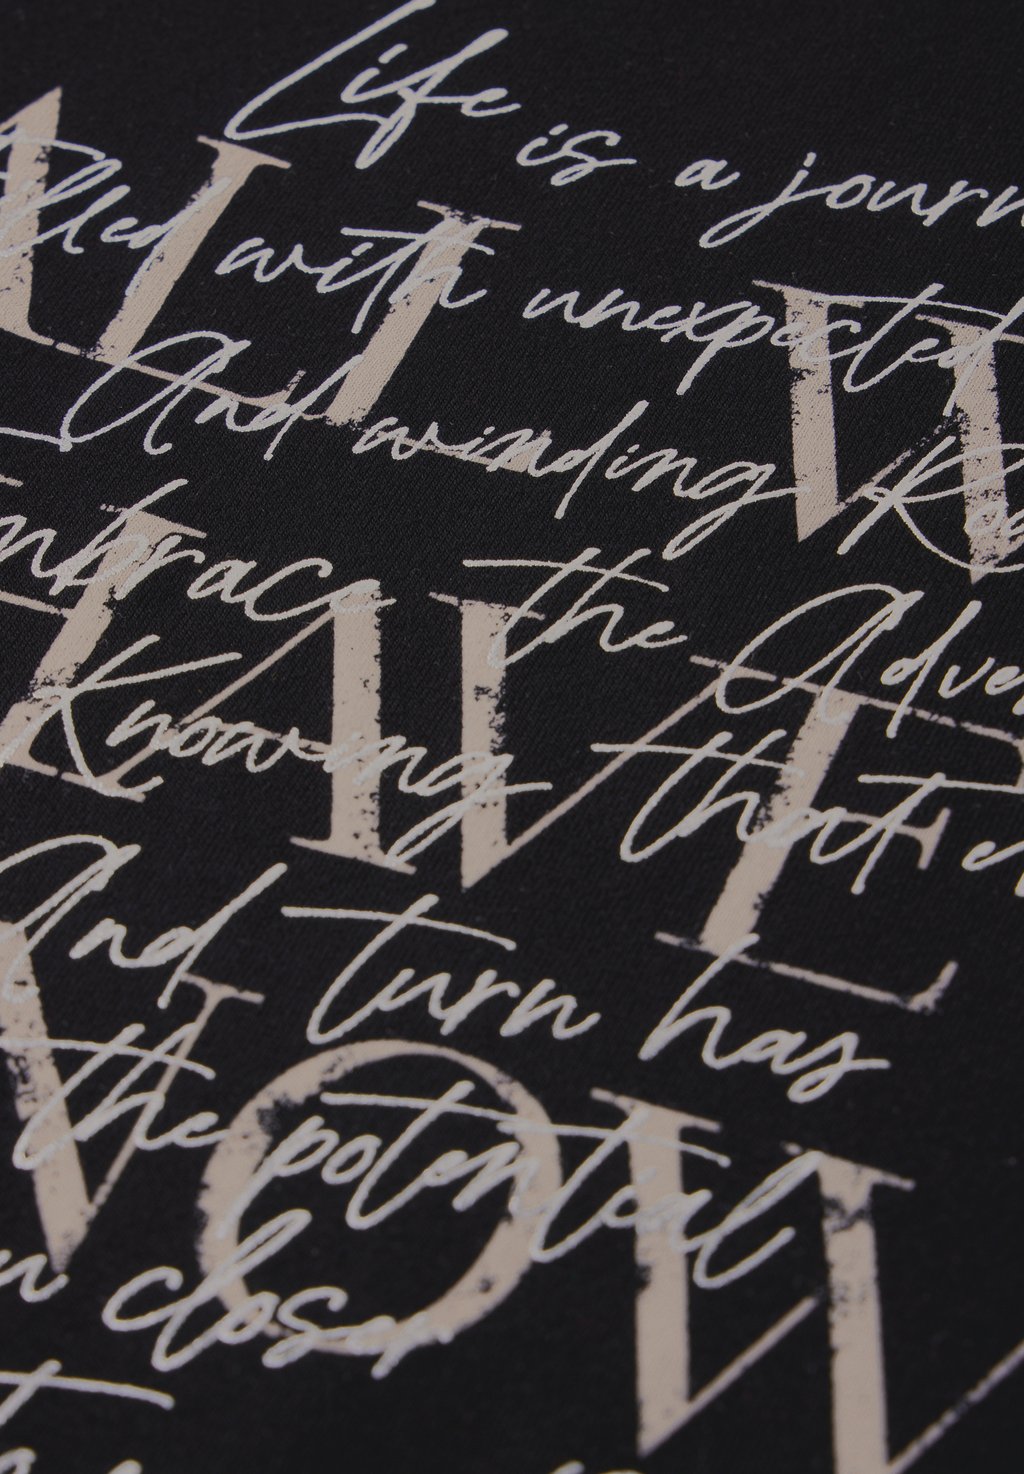 Life is a journ
filled with unexpected
And winding Roa
Embrace the Adven
Knowing that e
And turn has
the potential
closer
ALL W
HAVE
NOW